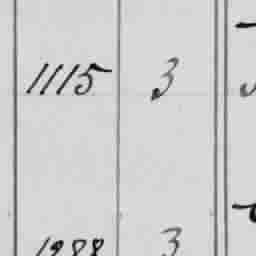 1115 3
1288 3